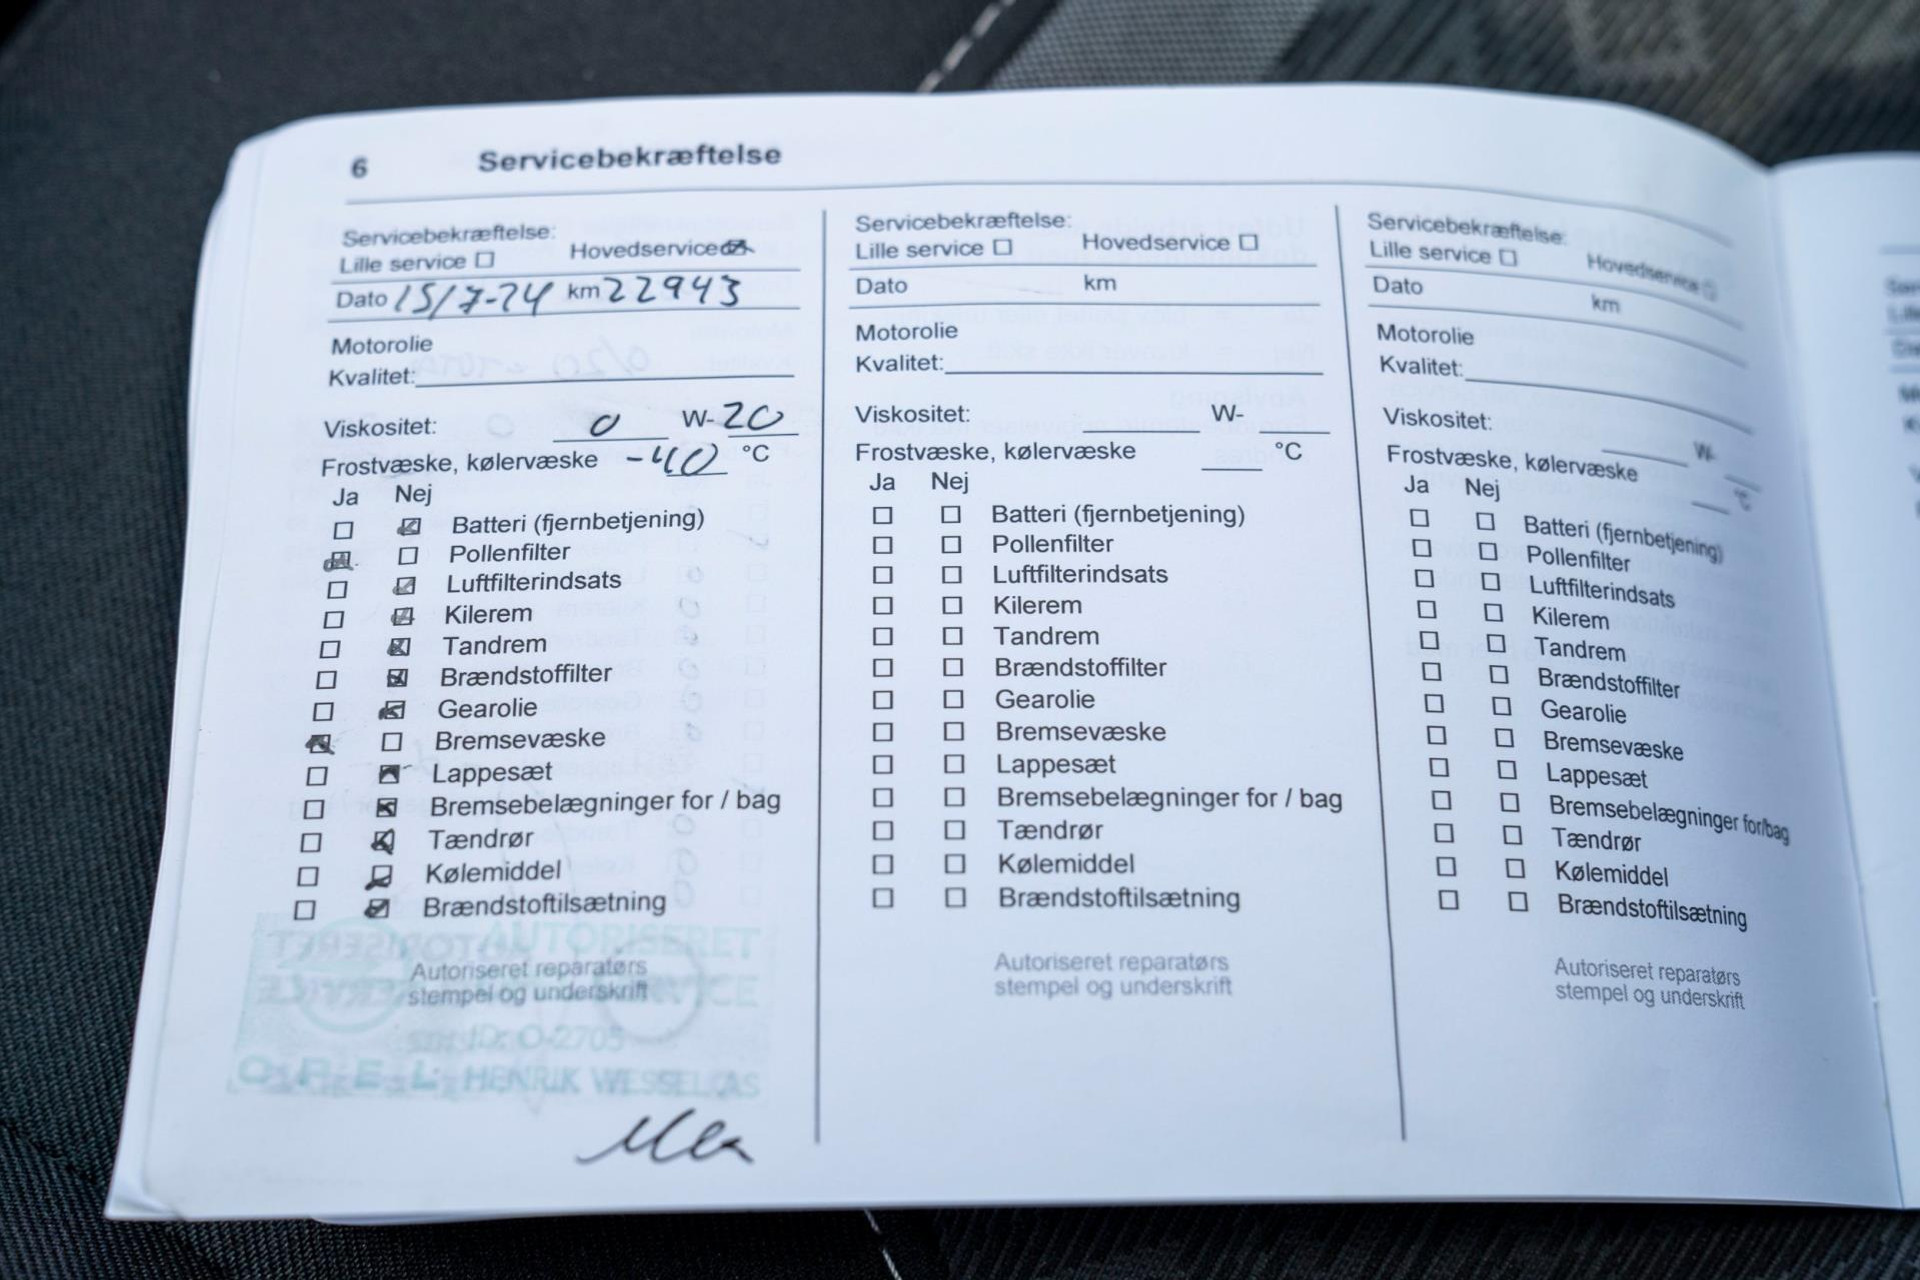 6 Servicebekræftelse
Servicebekræftelse:
Lille service ☐ Hovedservice ☒
Dato 15/7-24 km 22943
Motorolie
Kvalitet:
Viskositet: 0 W-20
Frostvæske, kølervæske -40 °C
Ja Nej
☐ ☒ Batteri (fjernbetjening)
☒ ☐ Pollenfilter
☐ ☒ Luftfilterindsats
☐ ☒ Kilerem
☐ ☒ Tandrem
☐ ☒ Brændstoffilter
☐ ☒ Gearolie
☒ ☐ Bremsevæske
☐ ☒ Lappesæt
☐ ☒ Bremsebelægninger for / bag
☐ ☒ Tændrør
☐ ☒ Kølemiddel
☐ ☒ Brændstoftilsætning
AUTORISERET
Autoriseret reparatørs
stempel og underskrift
ID: O-2705
OPEL HENRIK WESSEL AS
Servicebekræftelse:
Lille service ☐ Hovedservice ☐
Dato km
Motorolie
Kvalitet:
Viskositet: W-
Frostvæske, kølervæske °C
Ja Nej
☐ ☐ Batteri (fjernbetjening)
☐ ☐ Pollenfilter
☐ ☐ Luftfilterindsats
☐ ☐ Kilerem
☐ ☐ Tandrem
☐ ☐ Brændstoffilter
☐ ☐ Gearolie
☐ ☐ Bremsevæske
☐ ☐ Lappesæt
☐ ☐ Bremsebelægninger for / bag
☐ ☐ Tændrør
☐ ☐ Kølemiddel
☐ ☐ Brændstoftilsætning
Autoriseret reparatørs
stempel og underskrift
Servicebekræftelse:
Lille service ☐ Hovedservice ☐
Dato km
Motorolie
Kvalitet:
Viskositet: W-
Frostvæske, kølervæske °C
Ja Nej
☐ ☐ Batteri (fjernbetjening)
☐ ☐ Pollenfilter
☐ ☐ Luftfilterindsats
☐ ☐ Kilerem
☐ ☐ Tandrem
☐ ☐ Brændstoffilter
☐ ☐ Gearolie
☐ ☐ Bremsevæske
☐ ☐ Lappesæt
☐ ☐ Bremsebelægninger for/bag
☐ ☐ Tændrør
☐ ☐ Kølemiddel
☐ ☐ Brændstoftilsætning
Autoriseret reparatørs
stempel og underskrift